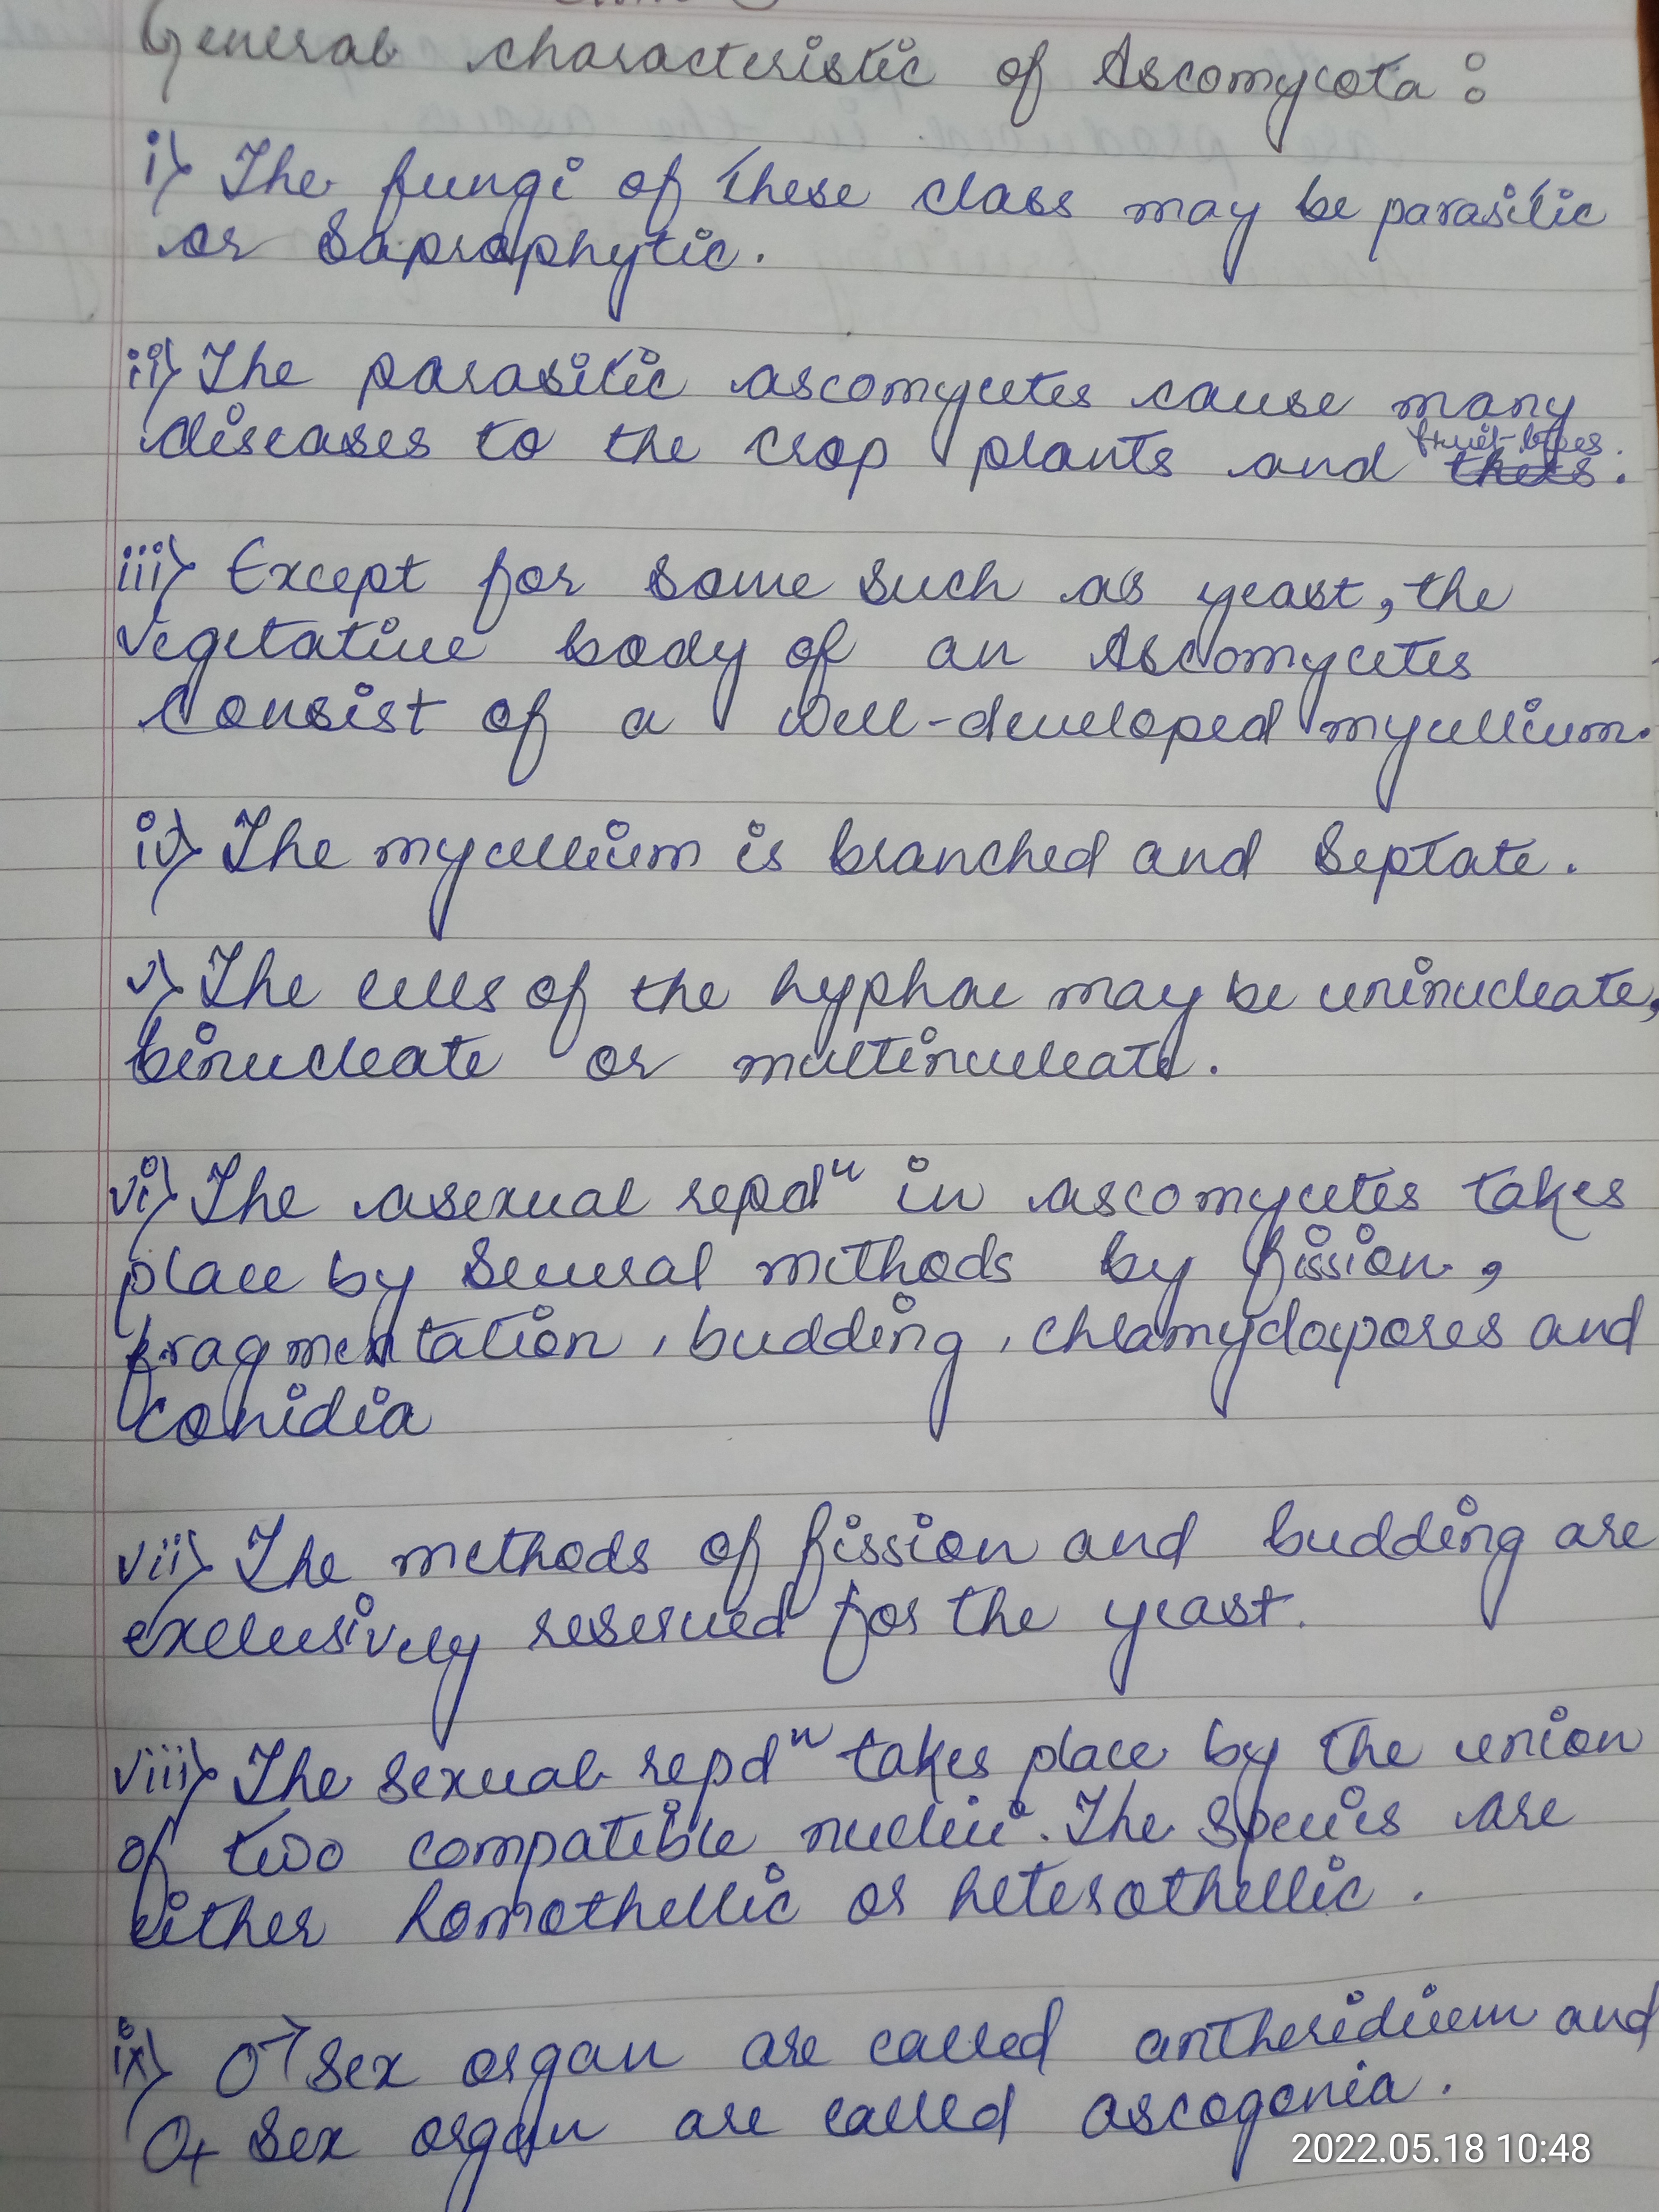 General characteristic of Ascomycota :
i) The fungi of these class may be parasitic
or saprophytic.
ii) The parasitic ascomycetes cause many
diseases to the crop plants and
iii) Except for some such as yeast, the
vegetative body of an Ascomycetes
consist of a well-developed mycellium.
iv) The mycellium is branched and septate.
v) The cells of the hyphae may be uninucleate,
binucleate or multinucleate.
vi) The asexual repdⁿ in ascomycetes takes
place by several methods by fission,
fragmentation, budding, chlamydospores and
conidia
vii) The methods of fission and budding are
exclusively reserved for the yeast.
viii) The sexual repdⁿ takes place by the union
of two compatible nuclei. The species are
either homothellic or heterothellic.
ix) ♂ sex organ are called antheridium and
♀ sex organ are called ascogonia.
2022.05.18 10:48